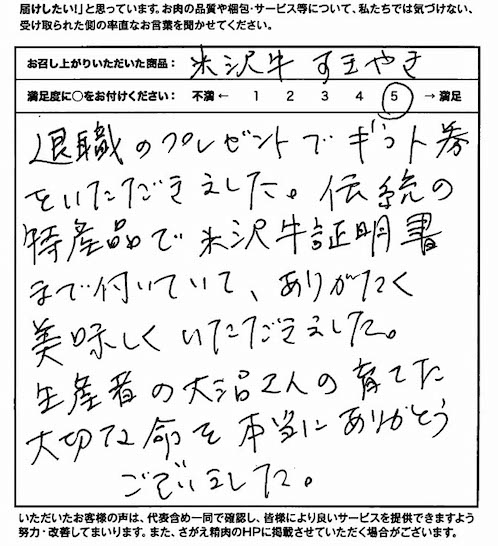 届けしたい！」と思っています。お肉の品質や梱包・サービス等について、私たちでは気づけない、
受け取られた側の率直なお言葉を聞かせてください。
お召し上がりいただいた商品： 米沢牛 すきやき
満足度に○をお付けください： 不満 ← 1 2 3 4 5 → 満足
退職のプレゼントでギフト券
をいただきました。伝統の
特産品で米沢牛証明書
まで付いていて、ありがたく
美味しくいただきました。
生産者の大沼さんの育てた
大切な命を本当にありがとう
ございました。
いただいたお客様の声は、代表含め一同で確認し、皆様により良いサービスを提供できますよう
努力・改善してまいります。また、さがえ精肉のHPに掲載させていただく場合がございます。